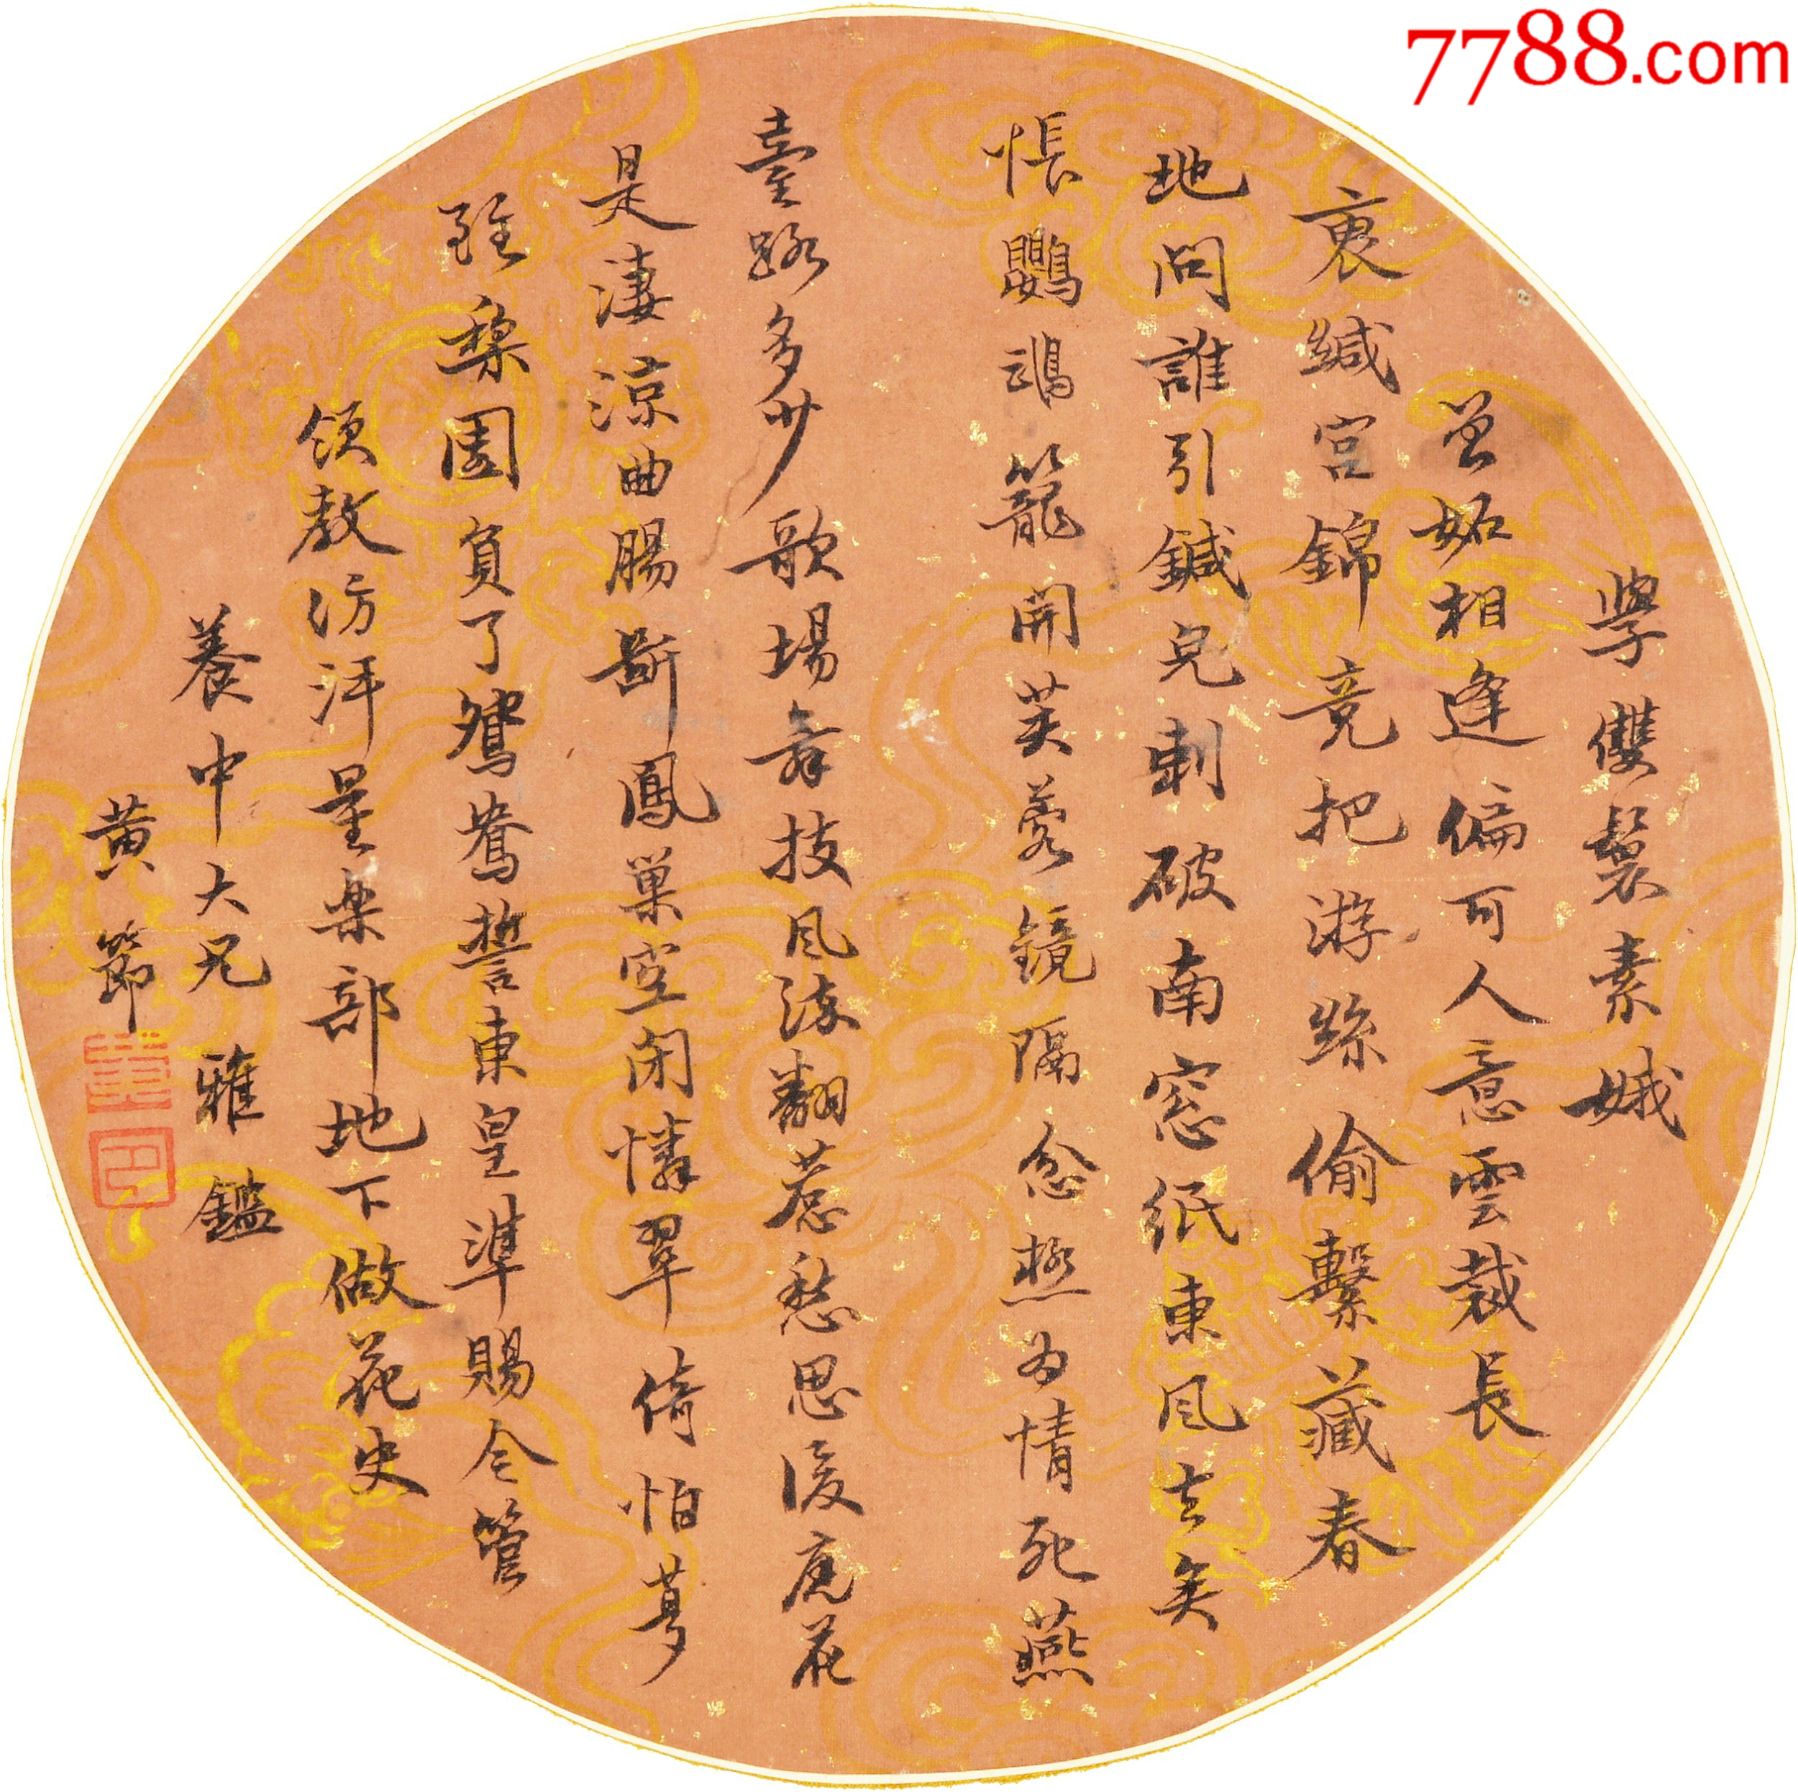 7788.com
學雙鬟素娥
曾妬相逢偏可人意雲裁長
裏緘宮錦竟把游絲偷繫藏春
地問誰引鍼兒刺破南窓紙東風去矣
悵鸚鵡籠開芙蓉鏡隔忿極為情死燕
臺路多少歌場舞技風流翻惹愁思後庭花
是淒涼曲腸斷鳳巢空閉憐翠倚怕尋
梨園負了鴛鴦誓東皇準賜令管
領教坊洋量樂部地下做花史
養中大兄雅鑑
黄節